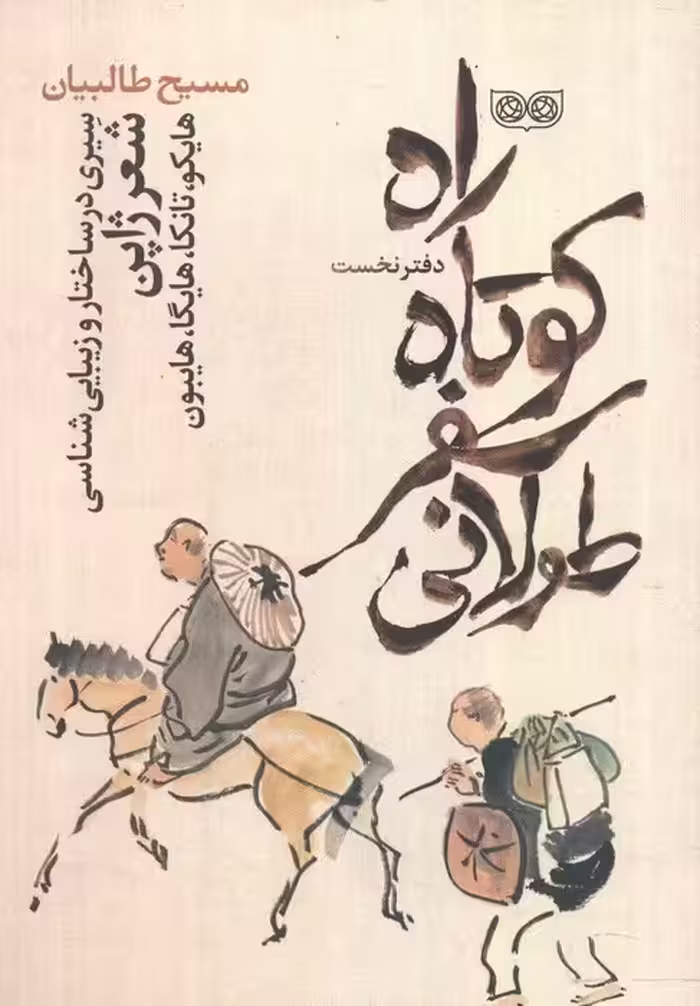 راه
کوتاه
سفر
طولانی
دفتر نخست
مسیح طالبیان
سِیری در ساختار و زیبایی شناسی
شعر ژاپن
هایکو، تانکا، هایگا، هایبون